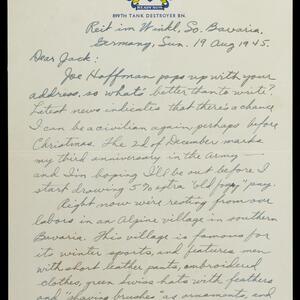 READY NOW
899TH TANK DESTROYER BN.
Reit im Winkl, So. Bavaria.
Germany, Sun. 19 Aug 1945.
Dear Jack:
Joe Hoffman pops up with your
address, so what's better than to write?
Latest news indicates that there's a chance
I can be a civilian again, perhaps before
Christmas. The 2d of December marks
my third anniversary in the Army —
and I'm hoping I'll be out before I
start drawing 5% extra "old fogy" pay.
Right now we're resting from our
labors in an Alpine village in southern
Bavaria. This village is famous for
its winter sports, and features men
with short leather pants, embroidered
clothes, green Swiss hats with feathers
and "shaving brushes" as ornaments, and